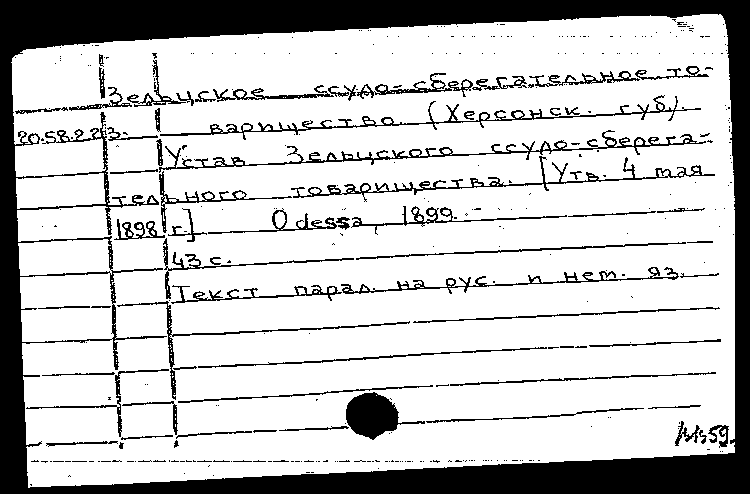 Зельцское ссудо-сберегательное то-
20.58.2.23. варищество (Херсонск. губ).
Устав Зельцского ссудо-сберега-
тельного товарищества. [Утв. 4 мая
1898 г.] Odessa, 1899.-
43 с.
Текст парал. на рус. и нем. яз.